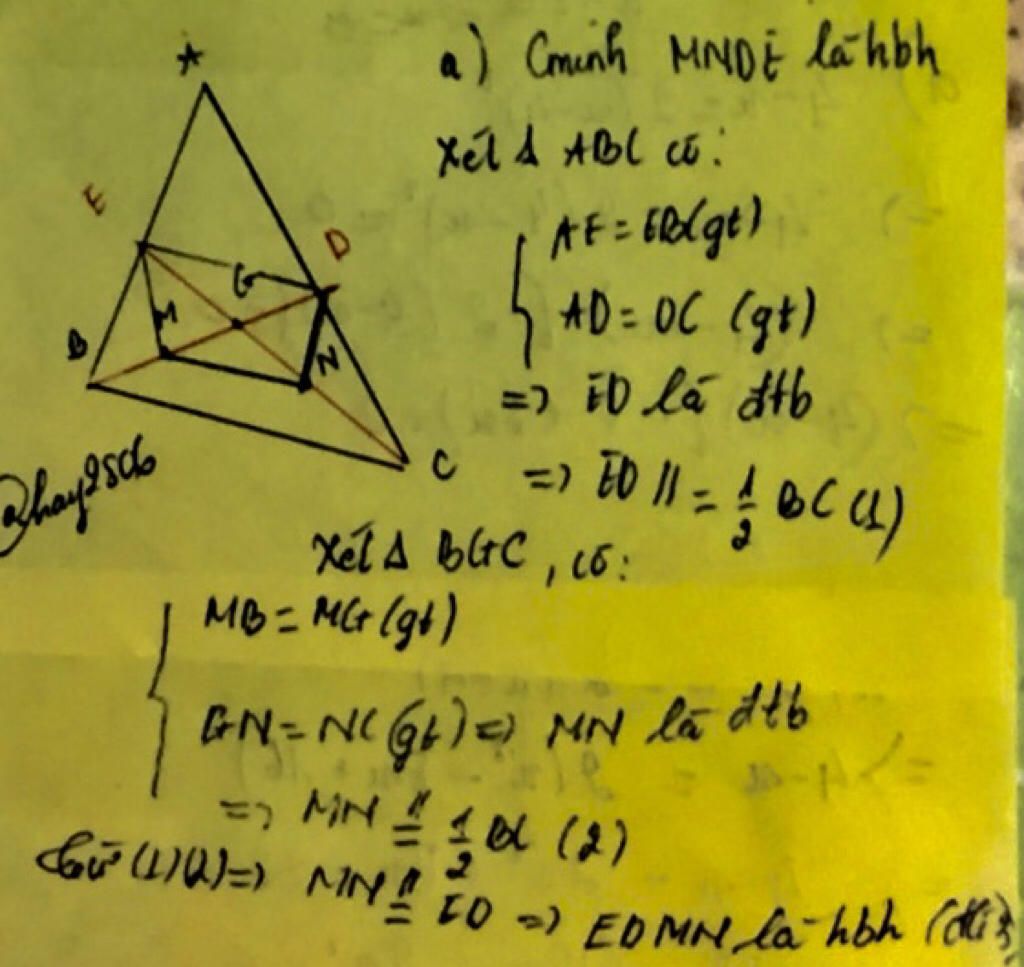 A
E
G
D
M
B
N
C
@hay2506
a) Cminh MNDE là hbh
Xét Δ ABC có:
AE = EB (gt)
AD = DC (gt)
=> ED là đtb
=> ED // = 1/2 BC (1)
Xét Δ BGC, có:
MB = MG (gt)
GN = NC (gt) => MN là đtb
=> MN // = 1/2 BC (2)
Từ (1)(2) => MN // = ED => EDMN là hbh